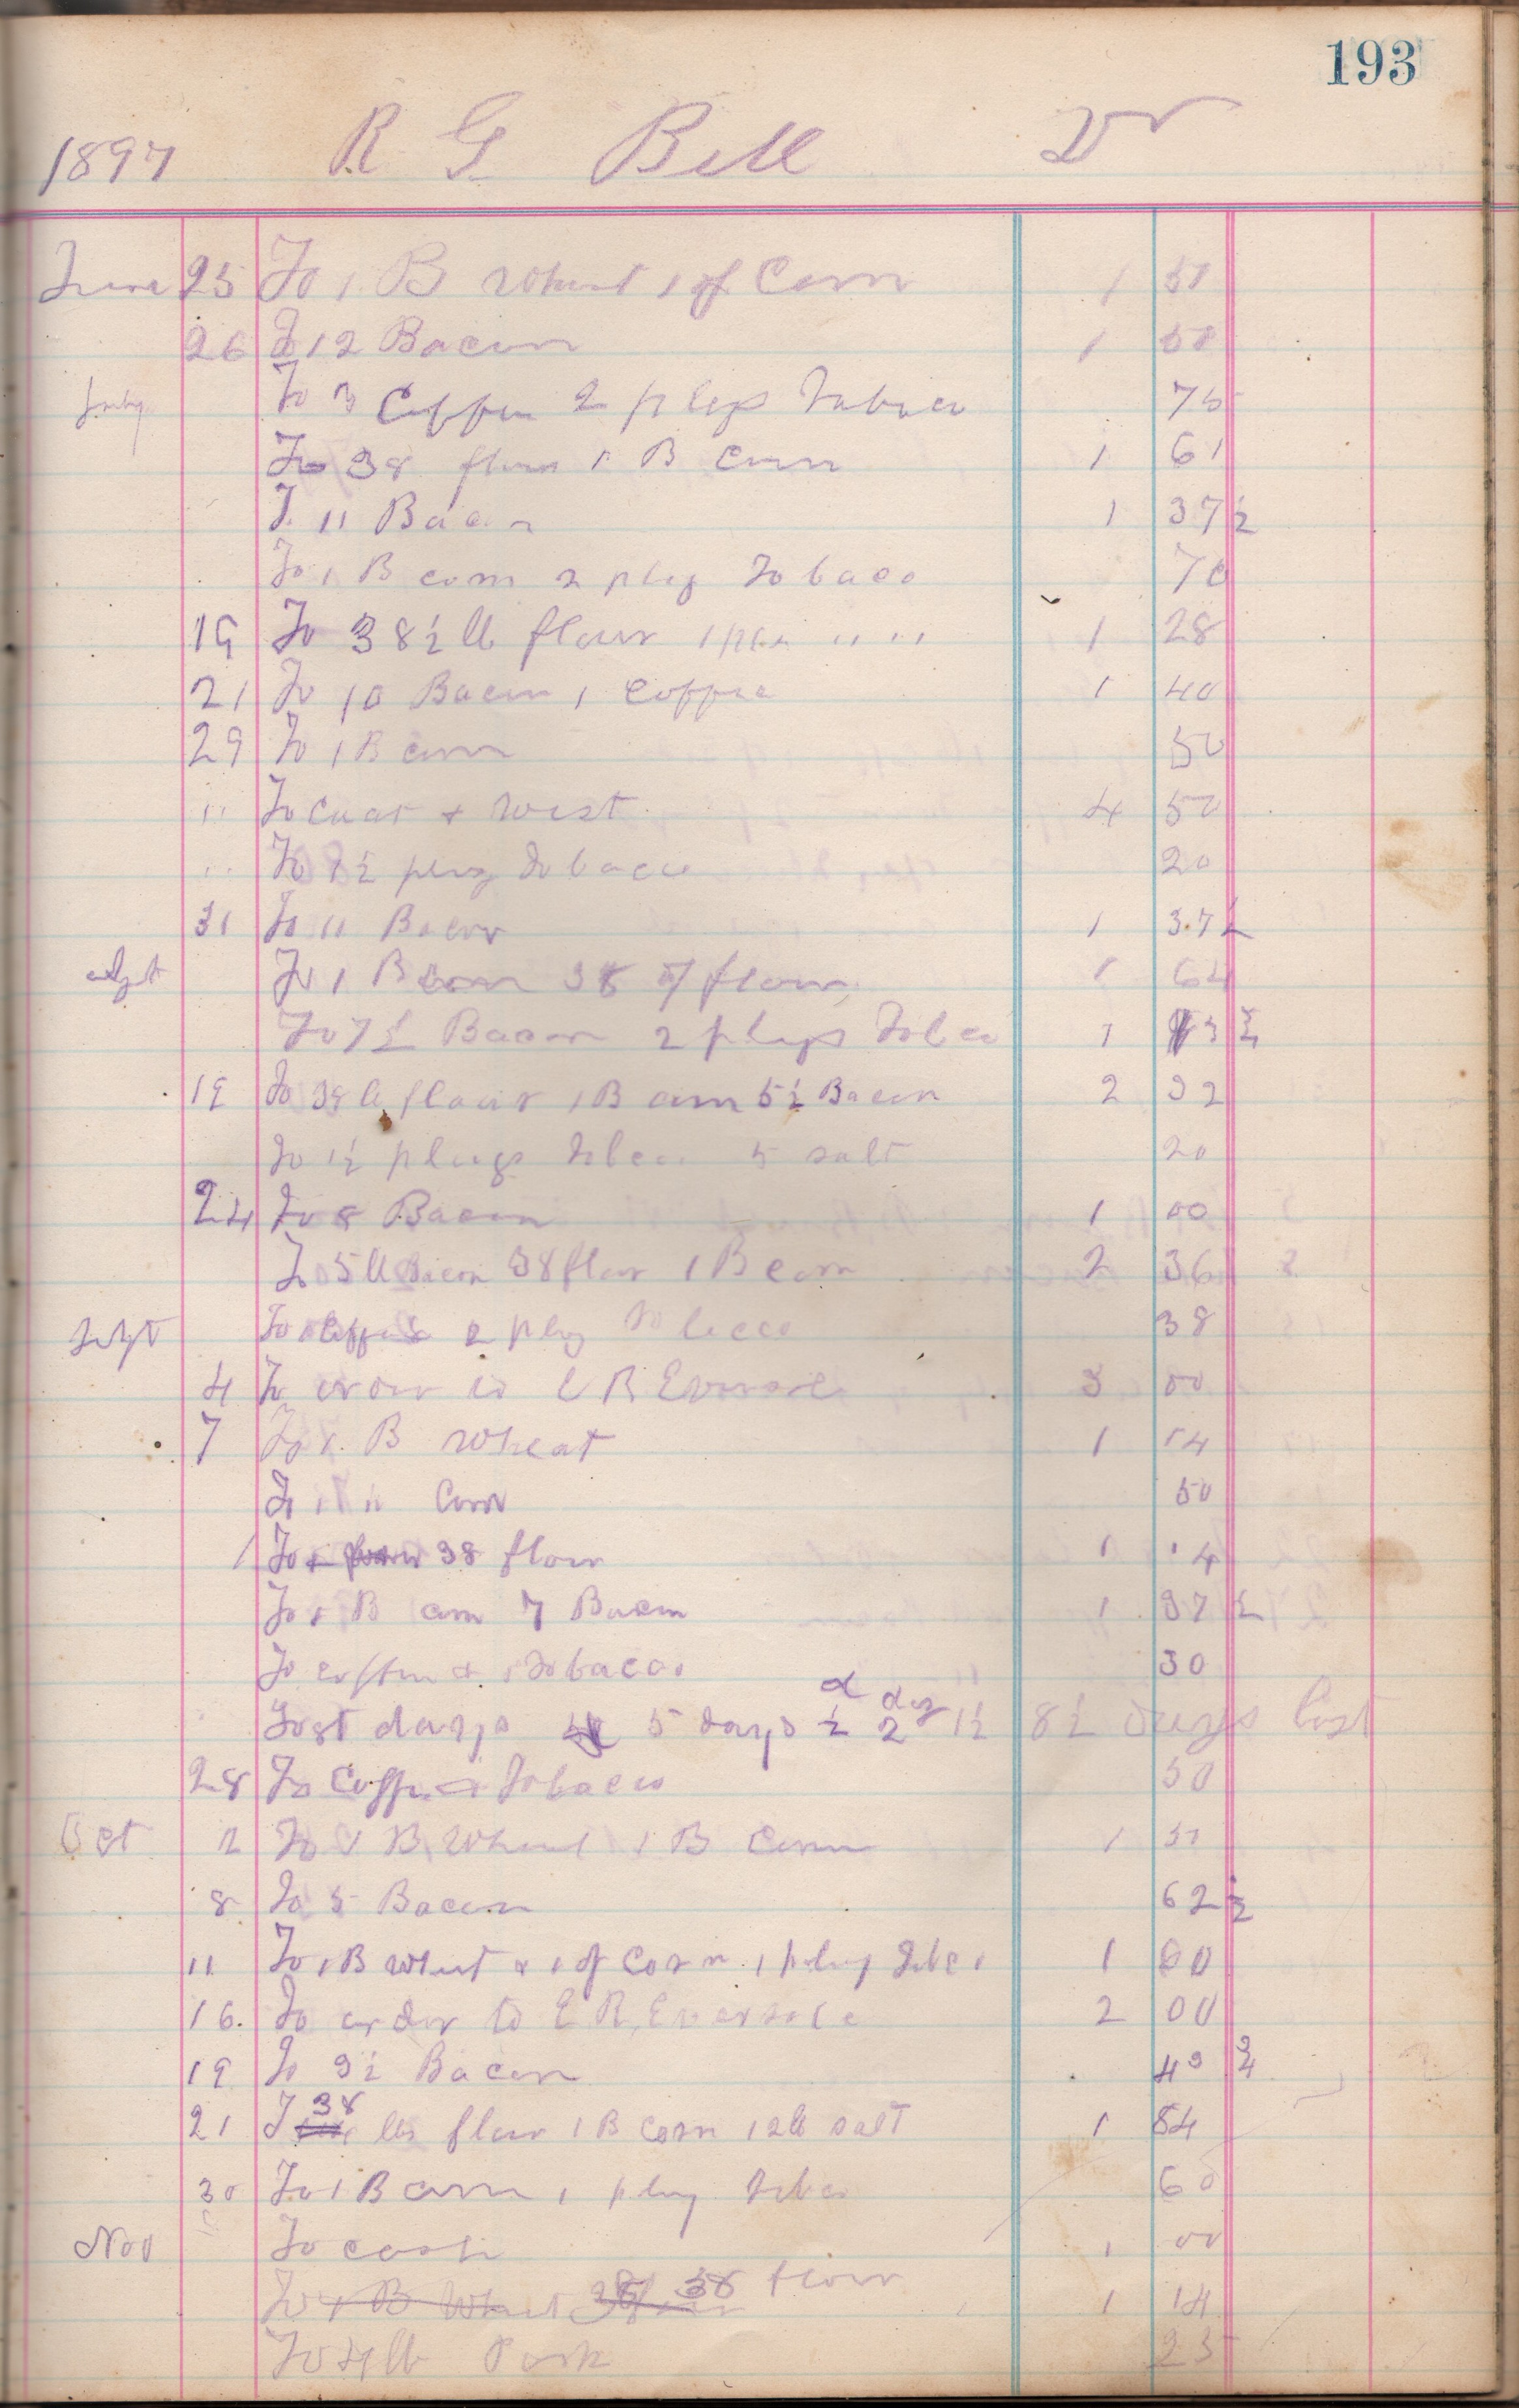 193
1897 R G Bell Dr
June 25 To 1 B Wheat 1 of Corn 1 50
26 To 12 Bacon 1 50
July To 3 Coffee 2 plugs Tobaco 75
To 38 flour 1 B Corn 1 61
To 11 Bacon 1 37 1/2
To 1 B corn 2 plug Tobaco 70
19 To 38 1/2 lb flour 1 plug " " 1 28
21 To 10 Bacon 1 Coffee 1 40
29 To 1 B corn 50
" To Coat & West 4 50
" To 1 1/2 plug Tobacco 20
31 To 11 Bacon 1 37 1/2
Agt To 1 B Corn 38 of flour 1 64
To 7 1/2 Bacon 2 plugs Tobco 1 13 3/4
19 To 38 lb flour 1 B corn 5 1/2 Bacon 2 32
To 1 1/2 plugs Tobco 5 salt 20
24 To 8 Bacon 1 00
To 5 lb Bacon 38 flour 1 B corn 2 36
Sept To Coffee 2 plug Tobacco 38
4 To order to E R Eversole 3 00
7 To 1 B Wheat 1 14
To 1 " Corn 50
To 38 flour 1 14
To 1 B corn 7 Bacon 1 37 1/2
To coffee & 1 Tobacco 30
Lost days 5 days 1/2 d 2 day 1 1/2 8 1/2 Days lost
28 To Coffee & Tobacco 50
Oct 2 To 1 B Wheat 1 B Corn 1 50
8 To 5 Bacon 62 1/2
11 To 1 B Wheat & 1 of Corn 1 plug Tobco 1 60
16 To order to E R Eversole 2 00
19 To 3 1/2 Bacon 43 3/4
21 To 38 lbs flour 1 B Corn 12 lb salt 1 84
30 To 1 B corn 1 plug Tobco 60
Nov To cash 1 00
To 1 B Wheat 38 flour 1 14
To 4 lb Pork 25